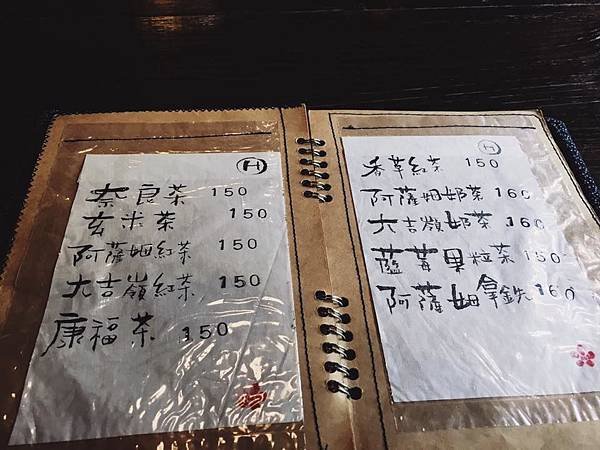 H
奈良茶 150
玄米茶 150
阿薩姆紅茶 150
大吉嶺紅茶 150
康福茶 150
H
香草紅茶 150
阿薩姆奶茶 160
大吉嶺奶茶 160
藍莓果粒茶 150
阿薩姆拿鉄 160